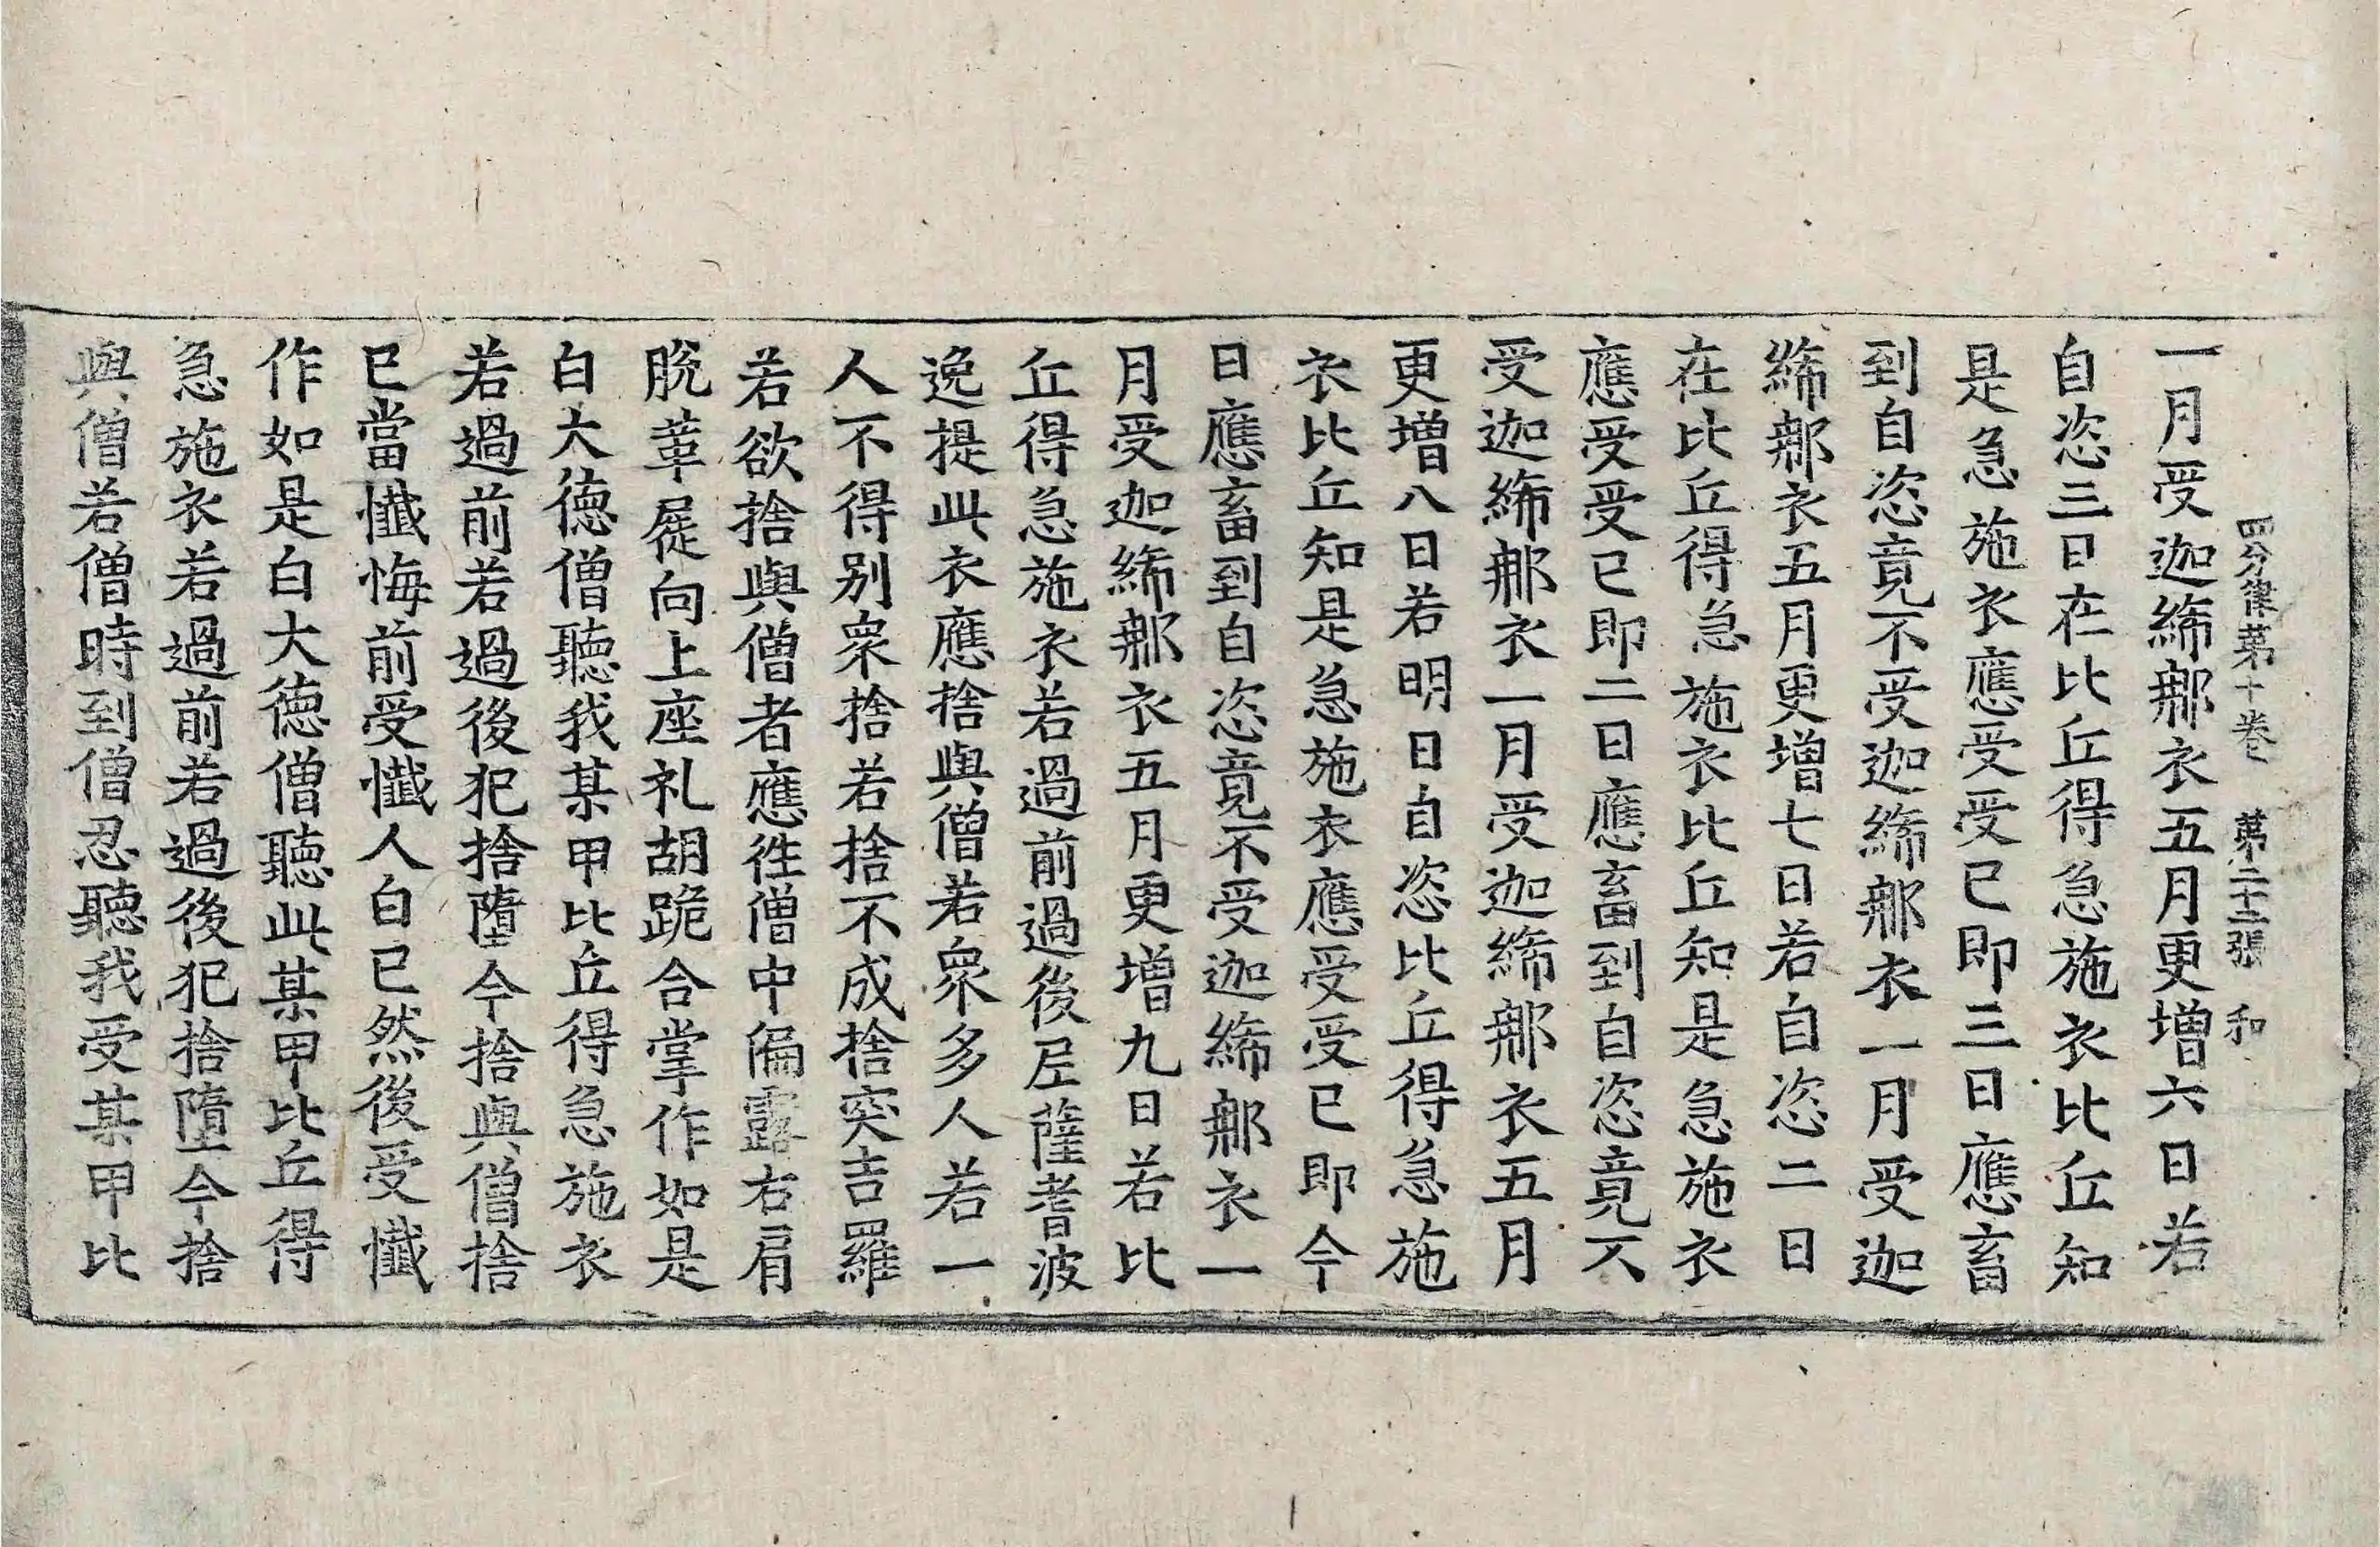 四分律第十卷 第二十二張 和
一月受迦絺那衣五月更增六日若
自恣三日在比丘得急施衣比丘知
是急施衣應受受已即三日應畜
到自恣竟不受迦絺那衣一月受迦
絺那衣五月更增七日若自恣二日
在比丘得急施衣比丘知是急施衣
應受受已即二日應畜到自恣竟不
受迦絺那衣一月受迦絺那衣五月
更增八日若明日自恣比丘得急施
衣比丘知是急施衣應受受已即今
日應畜到自恣竟不受迦絺那衣一
月受迦絺那衣五月更增九日若比
丘得急施衣若過前過後尼薩耆波
逸提此衣應捨與僧若衆多人若一
人不得別衆捨若捨不成捨突吉羅
若欲捨與僧者應徃僧中偏露右肩
脫革屣向上座礼胡跪合掌作如是
白大德僧聽我某甲比丘得急施衣
若過前若過後犯捨墮今捨與僧捨
已當懺悔前受懺人白已然後受懺
作如是白大德僧聽此某甲比丘得
急施衣若過前若過後犯捨墮今捨
與僧若僧時到僧忍聽我受某甲比